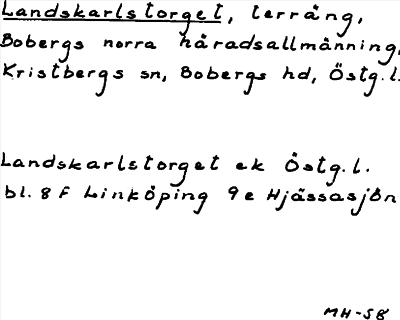 Landskarlstorget, terräng,
Bobergs norra häradsallmänning,
Kristbergs sn, Bobergs hd, Östg.l.
Landskarlstorget ek Östg.l.
bl. 8 F Linköping 9 e Hjässasjön
MH-58